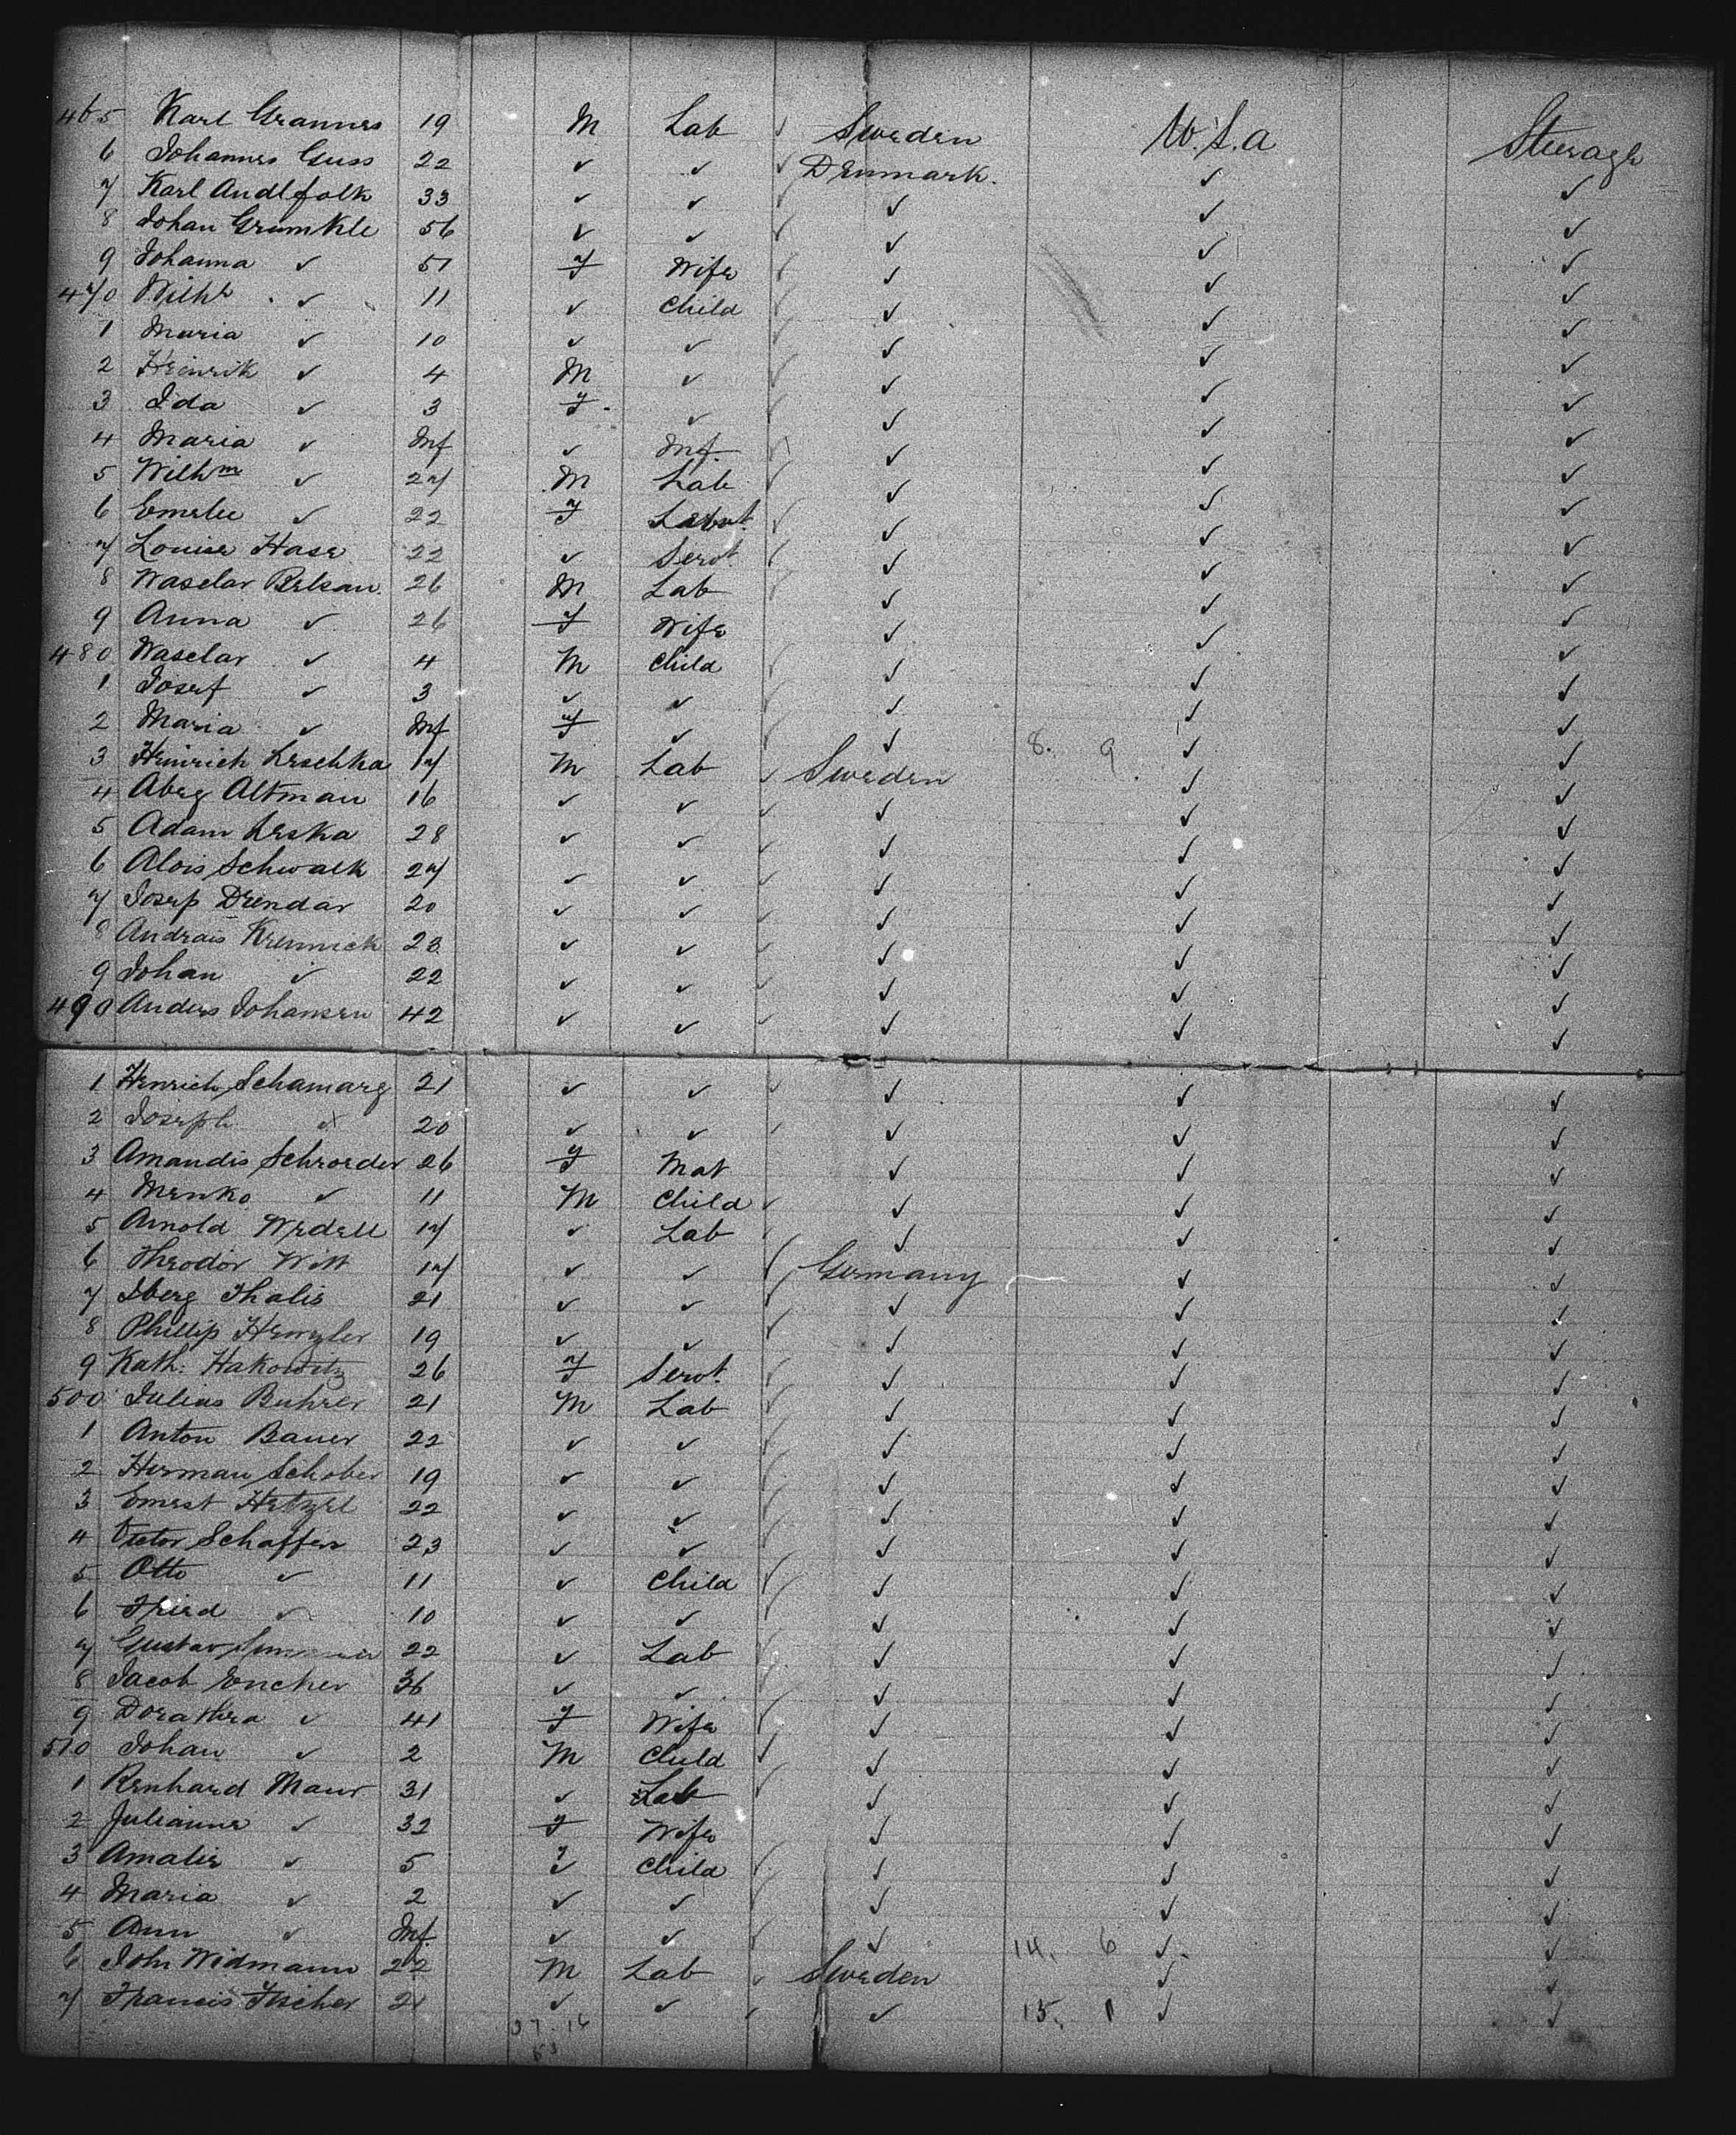 465 Karl Grannes 19 M Lab ✓ Sweden U.S.a Steerage
6 Johannes Guss 22 ✓ ✓ ✓ Denmark. ✓ ✓
7 Karl Andlfolk 33 ✓ ✓ ✓ ✓ ✓ ✓
8 Johan Grumkle 56 ✓ ✓ ✓ ✓ ✓ ✓
9 Johanna ✓ 51 F Wife ✓ ✓ ✓ ✓
470 Wilhe ✓ 11 ✓ Child ✓ ✓ ✓ ✓
1 Maria ✓ 10 ✓ ✓ ✓ ✓ ✓ ✓
2 Heinrik ✓ 4 M ✓ ✓ ✓ ✓ ✓
3 Ida ✓ 3 F ✓ ✓ ✓ ✓ ✓
4 Maria ✓ Inf ✓ Inf. ✓ ✓ ✓ ✓
5 Wilhm ✓ 27 M Lab ✓ ✓ ✓ ✓
6 Emelie ✓ 22 F ✓ ✓ ✓ ✓
7 Louise Hase 22 ✓ Servt. ✓ ✓ ✓ ✓
8 Waselav Belsan 26 M Lab ✓ ✓ ✓ ✓
9 Anna ✓ 26 F Wife ✓ ✓ ✓ ✓
480 Waselav ✓ 4 M Child ✓ ✓ ✓ ✓
1 Josef ✓ 3 ✓ ✓ ✓ ✓ ✓ ✓
2 Maria ✓ Inf F ✓ ✓ ✓ 8. 9 ✓ ✓
3 Heinrich Leschka 17 M Lab ✓ Sweden ✓ ✓
4 Aberg Altman 16 ✓ ✓ ✓ ✓ ✓ ✓
5 Adam Leska 28 ✓ ✓ ✓ ✓ ✓ ✓
6 Alois Schwalk 27 ✓ ✓ ✓ ✓ ✓ ✓
7 Josep Drendar 20 ✓ ✓ ✓ ✓ ✓ ✓
8 Andrais Krennick 23 ✓ ✓ ✓ ✓ ✓ ✓
9 Johan ✓ 22 ✓ ✓ ✓ ✓ ✓ ✓
490 Anders Johansen 42 ✓ ✓ ✓ ✓ ✓ ✓
1 Henrich Schamarg 21 ✓ ✓ ✓ ✓ ✓ ✓
2 Joseph ✓ 20 ✓ ✓ ✓ ✓ ✓ ✓
3 Amandis Schroeder 26 F Mat ✓ ✓ ✓
4 Menko ✓ 11 M Child ✓ ✓ ✓ ✓
5 Arnold Wedell 17 ✓ Lab ✓ ✓ ✓ ✓
6 Theodor Witt 17 ✓ ✓ ✓ Germany ✓ ✓
7 Iberg Thalis 21 ✓ ✓ ✓ ✓ ✓ ✓
8 Phillip Hengler 19 ✓ ✓ ✓ ✓ ✓ ✓
9 Kath: Hakowitz 26 F Servt. ✓ ✓ ✓ ✓
500 Julius Buhrer 21 M Lab ✓ ✓ ✓ ✓
1 Anton Bauer 22 ✓ ✓ ✓ ✓ ✓ ✓
2 Herman Schober 19 ✓ ✓ ✓ ✓ ✓ ✓
3 Ernest Hetzel 22 ✓ ✓ ✓ ✓ ✓ ✓
4 Victor Schaffen 23 ✓ ✓ ✓ ✓ ✓ ✓
5 Otto ✓ 11 ✓ Child ✓ ✓ ✓ ✓
6 Fried ✓ 10 ✓ ✓ ✓ ✓ ✓ ✓
7 Gustav 22 ✓ Lab ✓ ✓ ✓ ✓
8 Jacob Encher 36 ✓ ✓ ✓ ✓ ✓ ✓
9 Dorathea ✓ 41 F Wife ✓ ✓ ✓ ✓
510 Johan ✓ 2 M Child ✓ ✓ ✓ ✓
1 Renhard Maur 31 ✓ Lab ✓ ✓ ✓ ✓
2 Julianne ✓ 32 F Wife ✓ ✓ ✓
3 Amalie ✓ 5 ✓ Child ✓ ✓ ✓ ✓
4 Maria ✓ 2 ✓ ✓ ✓ ✓ ✓ ✓
5 Ann ✓ Inf. ✓ ✓ ✓ ✓ 14. 6 ✓ ✓
6 John Widmann 22 M Lab ✓ Sweden ✓ ✓
7 Francis Fischer 21 ✓ ✓ ✓ ✓ 15. 1 ✓ ✓
37.16
53